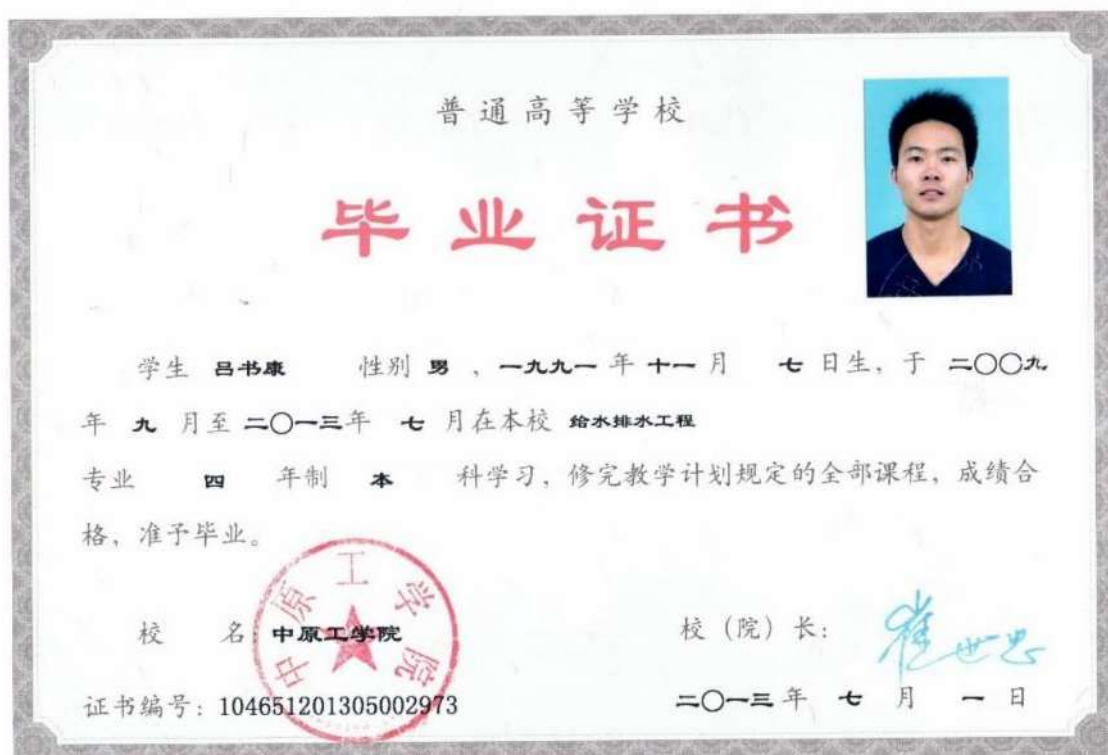 普通高等学校
毕业证书
学生 吕书康 性别 男 、一九九一 年 十一 月 七 日生，于 二〇〇九
年 九 月至 二〇一三年 七 月在本校 给水排水工程
专业 四 年制 本 科学习，修完教学计划规定的全部课程，成绩合
格，准予毕业。
中原工学院
校 名：中原工学院
校（院）长：崔世忠
证书编号：104651201305002973
二〇一三 年 七 月 一 日